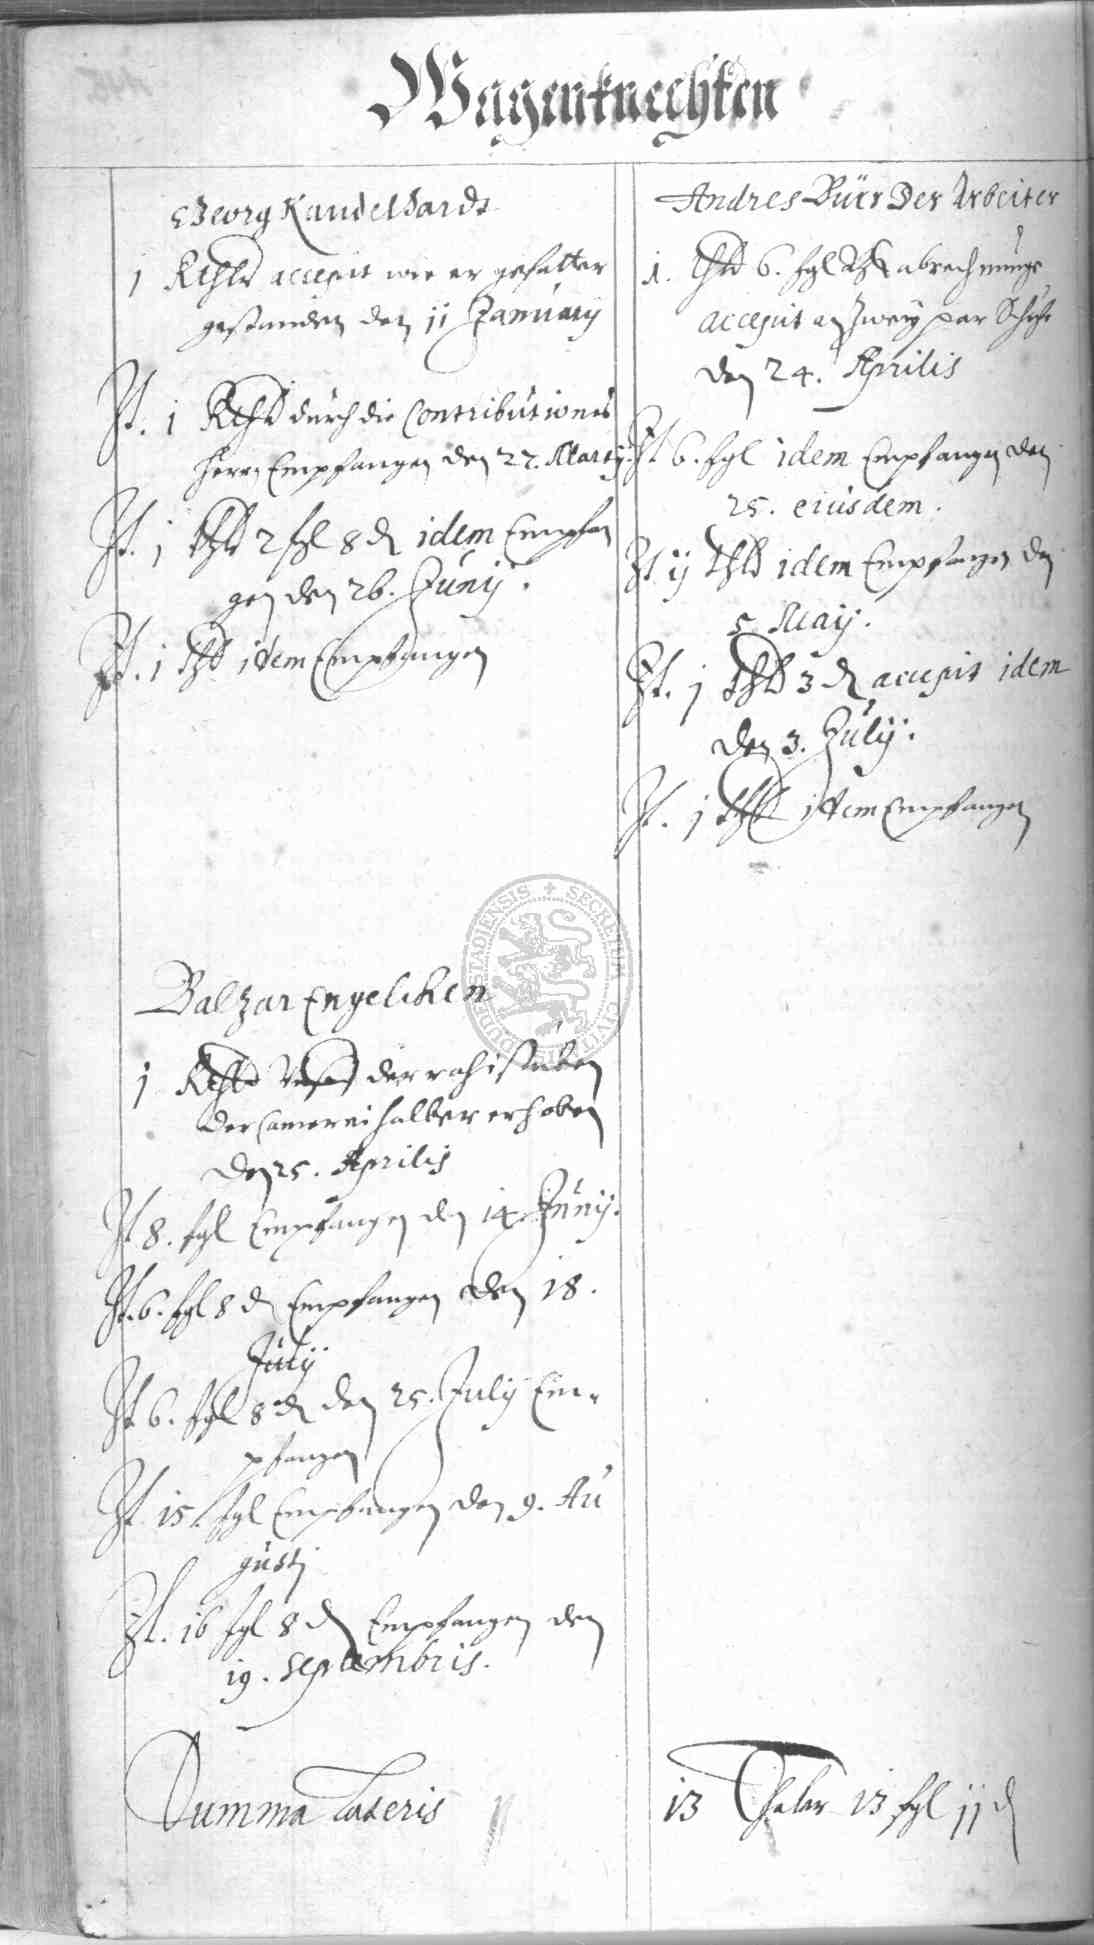 Wagenknechten
Georg Kandelhardt
1 Rthlr accepit wie er gefatter
gestanden den 11 January
It. 1 Rthlr durch die Contributiones
herrn Empfangen den 27. Marty
It. j thlr 2 sgl 8 d idem Empfan
gen den 26. Juny.
It. 1 thlr idem Empfangen
Balzar Engelcken
j Rthlr der rahtstuben
der Camerei halber erhoben
den 25. Aprilis
It 8. sgl Empfangen den 14. Juny.
It. 6. sgl 8 d Empfangen den 18.
July
It 6. sgl 8 d den 25. July Em-
pfangen
It 15. sgl Empfangen den 9. Au
gusti
It. 16 sgl 8 d Empfangen den
19. Septembris.
Andres Bürr Der Arbeiter
1. thlr 6. sgl abrechnungs
accepit an Zwey par Schuh
den 24. Aprilis
It 6. sgl idem Empfangen den
25. eiusdem.
It ij thlr idem Empfangen den
5. May.
It. j thlr 3 d accepit idem
den 3. July.
It. j thlr idem Empfangen
Summa Lateris 13 Thaler 13 sgl 11 d
SECRETUM CIVITATIS DUDERSTADIENSIS